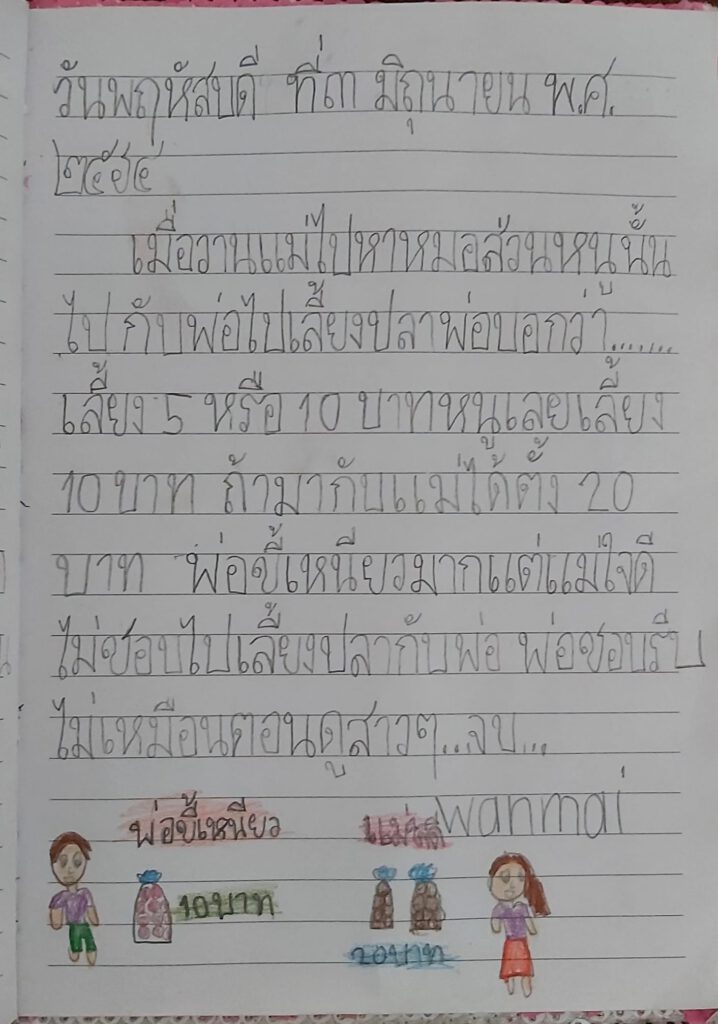 วันพฤหัสบดี ที่๓ มิถุนายน พ.ศ.
๒๕๖๔
เมื่อวานแม่ไปหาหมอส้วนหนูนั้น
ไป กับพ่อไปเลี้ยงปลาพ่อบอกว่า........
เลี้ยง 5 หรือ 10 บาทหนูเลยเลี้ยง
10 บาท ถ้ามากับแม่ได้ตั้ง 20
บาท พ่อขี้เหนียวมากแต่แม่ใจดี
ไม่ชอบไปเลี้ยงปลากับพ่อ พ่อชอบรีบ
ไม่เหมือนตอนดูสาวๆ...จบ...
พ่อขี้เหนียว wanmai
10บาท
20บาท